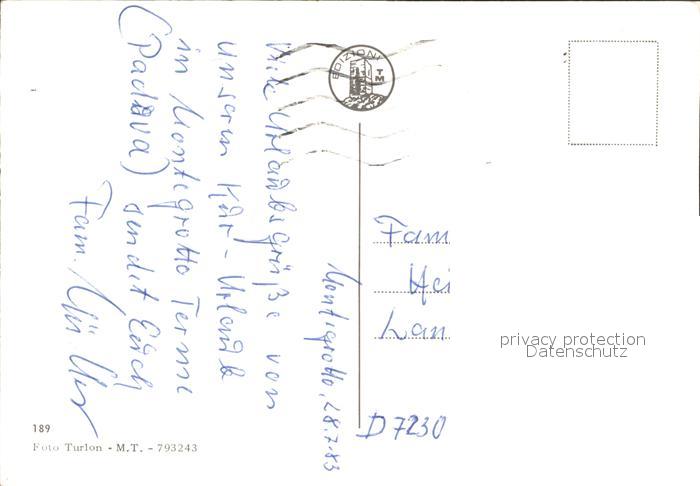 Montegrotto, 28.7.83
Viele Urlaubsgrüße von
unserem Kur-Urlaub
in Montegrotto Terme
(Padova) sendet Euch
Fam.
EDIZIONI
TM
Fam
Hei
Lan
D 7230
privacy protection
Datenschutz
189
Foto Turlon - M.T. - 793243